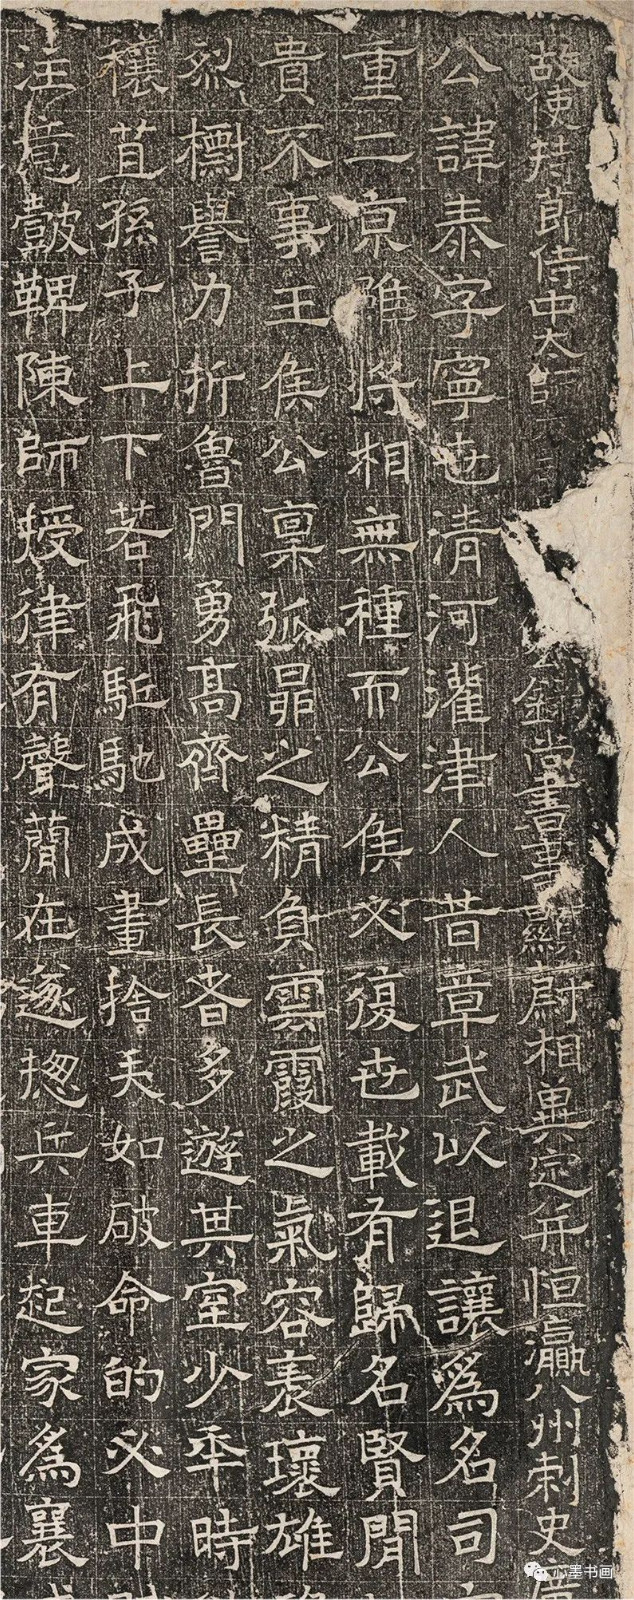 故使持節侍中太師
錄尚書事顯蔚相冀定并恒瀛八州刺史
公諱泰字寧世清河灌津人昔章武以退讓爲名司
重二京雖將相無種而公侯必復世載有歸名賢閒
貴不事王侯公稟弧昴之精負雲霞之氣容表瓌雄
烈檦譽力折魯門勇高齊壘長者多遊其室少年時
穰苴孫子上下若飛駈馳成畫捨矢如破命的必中
注意鼓鞞陳師授律有聲蕳在遂揔兵車起家爲襄
心墨书画